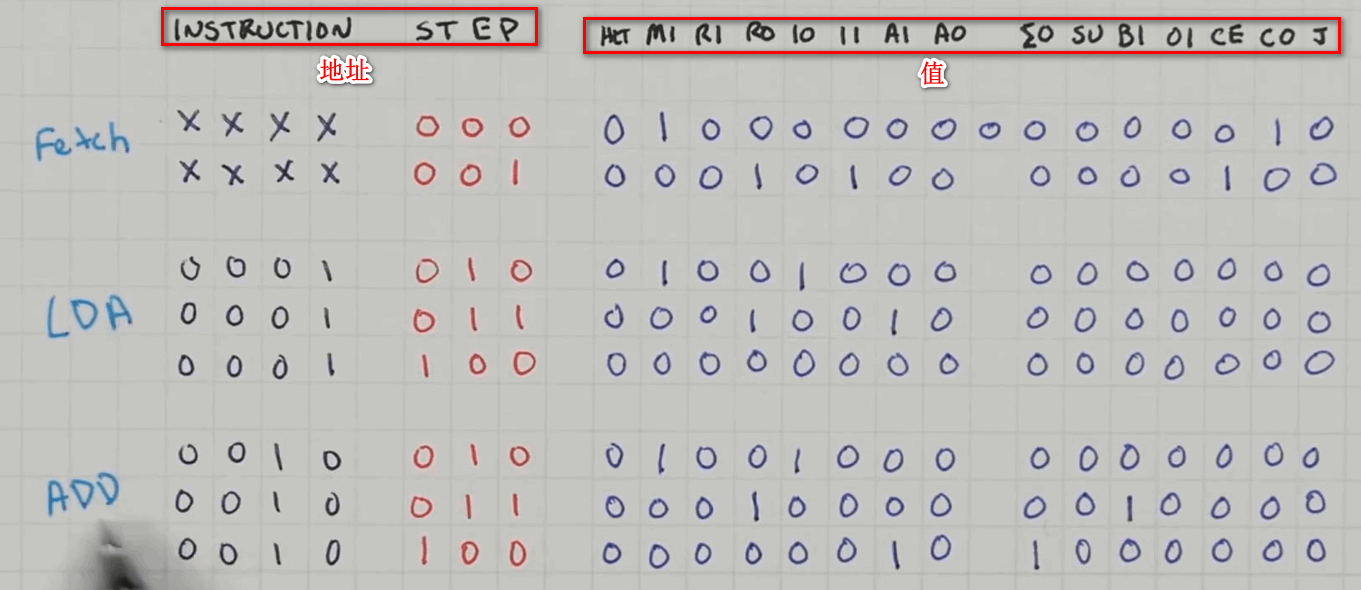 INSTRUCTION STEP HLT MI RI RO IO II AI AO ΣO SU BI OI CE CO J
地址 值
Fetch X X X X 0 0 0 0 1 0 0 0 0 0 0 0 0 0 0 0 0 1 0
X X X X 0 0 1 0 0 0 1 0 1 0 0 0 0 0 0 1 0 0
0 0 0 1 0 1 0 0 1 0 0 1 0 0 0 0 0 0 0 0 0 0
LDA 0 0 0 1 0 1 1 0 0 0 1 0 0 1 0 0 0 0 0 0 0 0
0 0 0 1 1 0 0 0 0 0 0 0 0 0 0 0 0 0 0 0 0 0
0 0 1 0 0 1 0 0 1 0 0 1 0 0 0 0 0 0 0 0 0 0
ADD 0 0 1 0 0 1 1 0 0 0 1 0 0 0 0 0 0 1 0 0 0 0
0 0 1 0 1 0 0 0 0 0 0 0 0 1 0 1 0 0 0 0 0 0